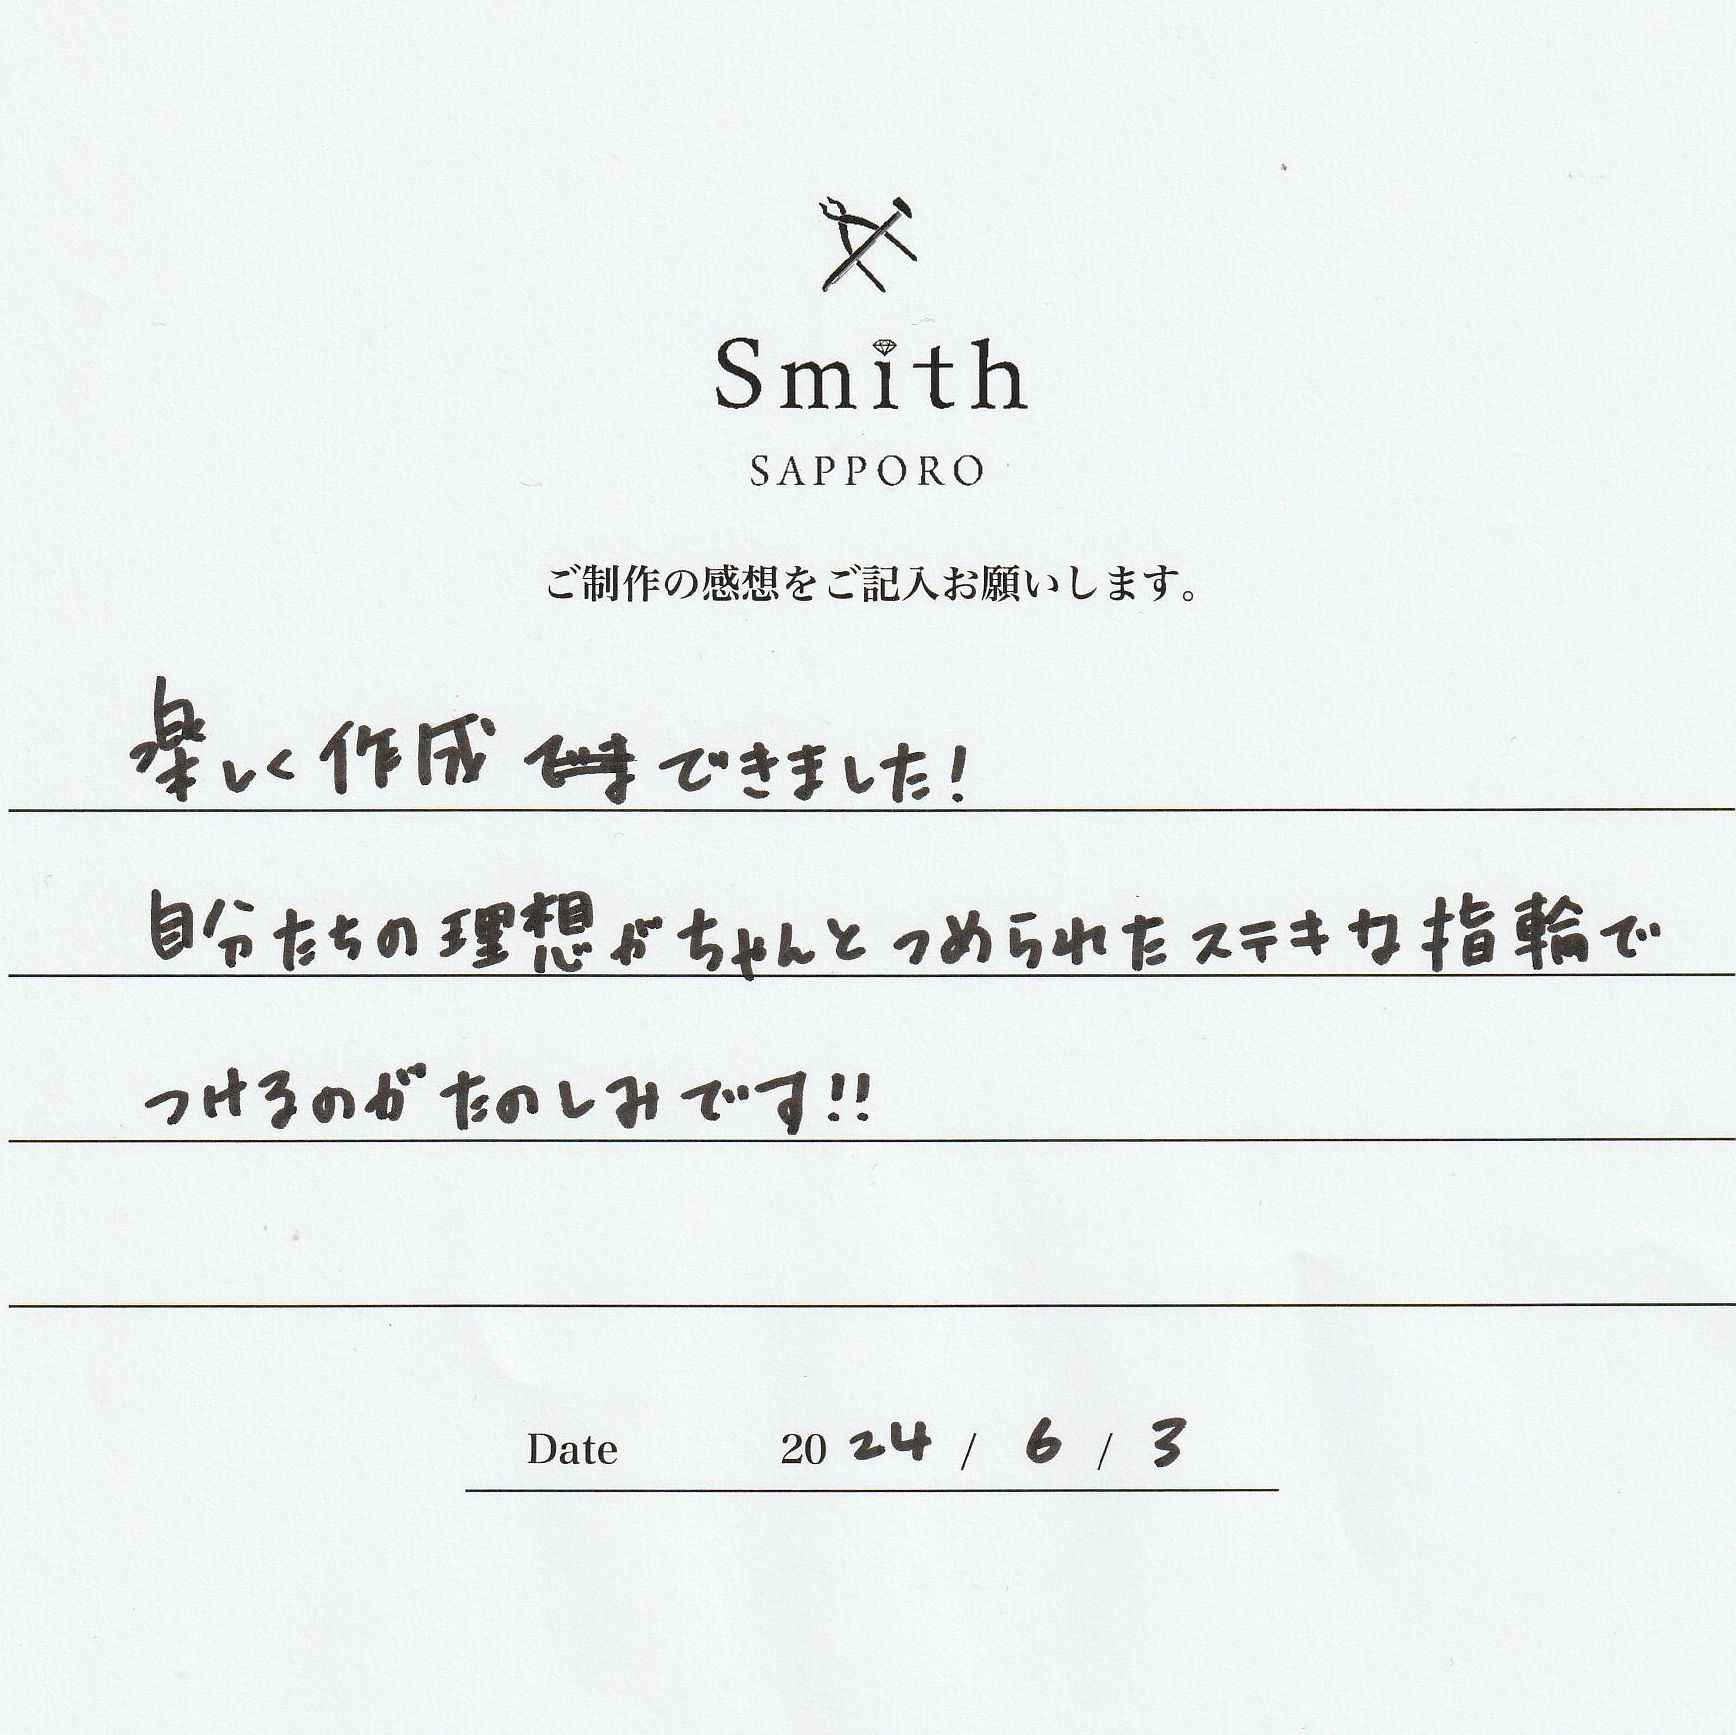 Smith
SAPPORO
ご制作の感想をご記入お願いします。
楽しく作成できました!
自分たちの理想がちゃんとつめられたステキな指輪で
つけるのがたのしみです!!
Date 2024 / 6 / 3